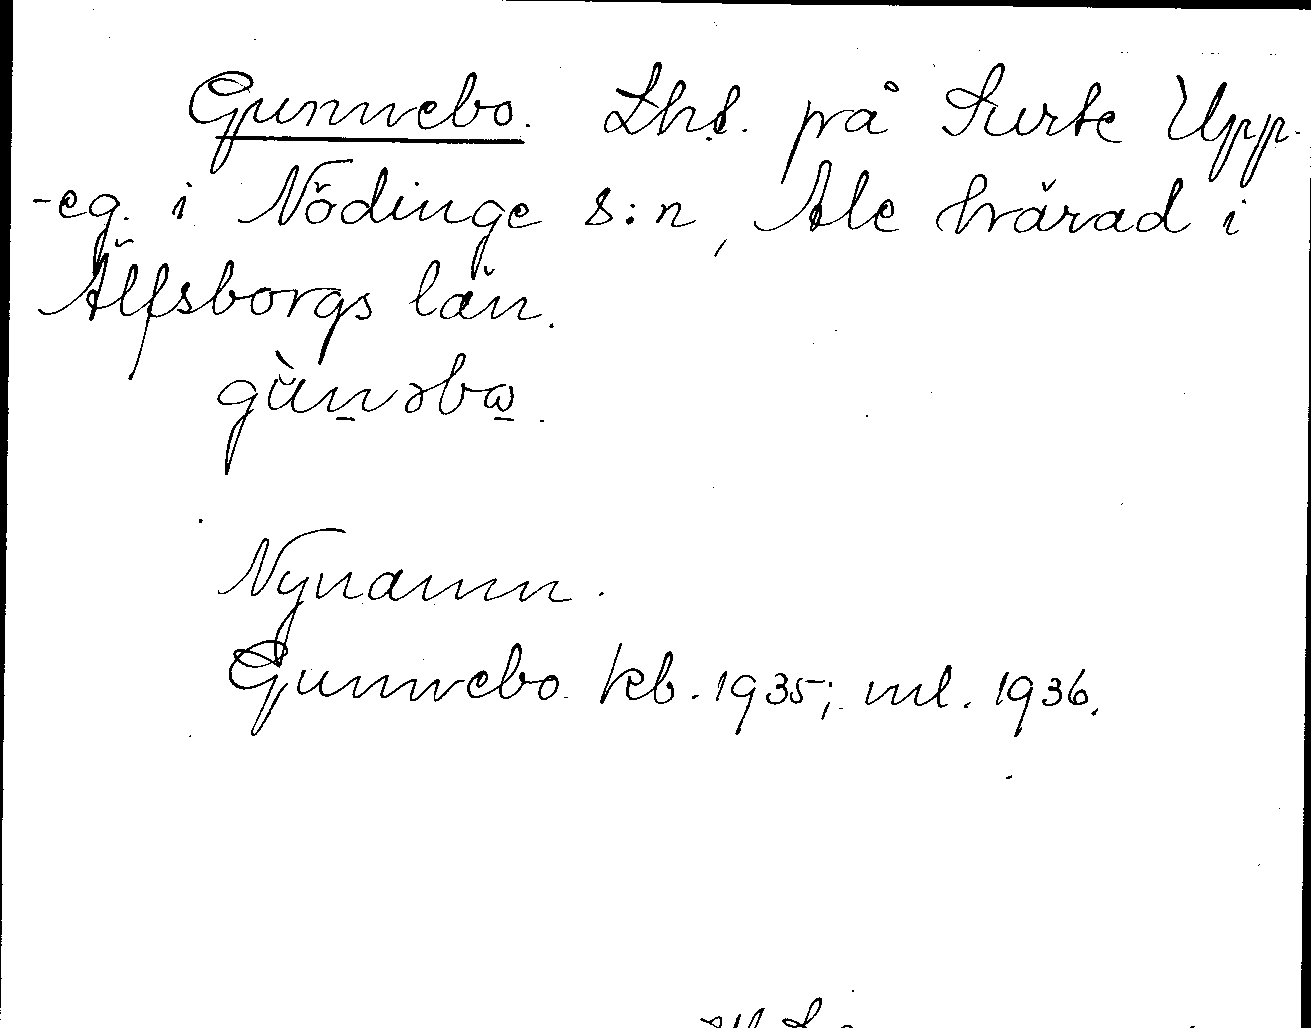 Gunnebo. Lht. på Surte Upp-
-eg. i Nödinge s:n, Ale härad i
Älfsborgs län.
gùn̲əbɷ̲.
Nynamn.
Gunnebo kb. 1935; ml. 1936.